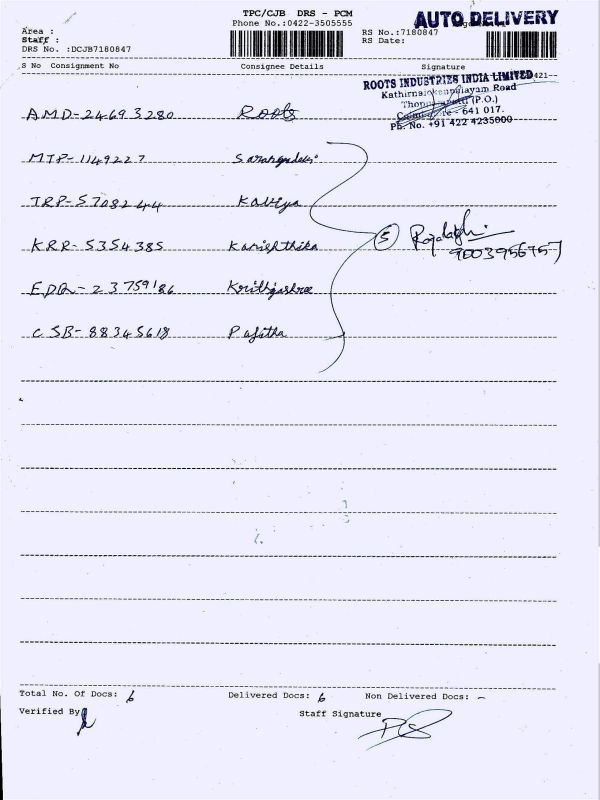 TPC/CJB DRS - PCM
AUTO DELIVERY
Phone No.:0422-3505555
Area :
Staff :
DRS No. :DCJB7180847
RS No.:7180847
RS Date:
S No Consignment No Consignee Details Signature
ROOTS INDUSTRIES INDIA LIMITED 421--
Road
(P.O.)
641 017.
Ph. No. +91 422 4235000
AMD-24693280 Roots
MTP-1149227
TRP-5708244 Kaviya
KRR-5354385 Kanishthika
EDR-23759186 Krithijashree
CSB-88345618 Pajitha
5
9003956757
Total No. Of Docs: 6 Delivered Docs: 6 Non Delivered Docs: -
Verified By Staff Signature